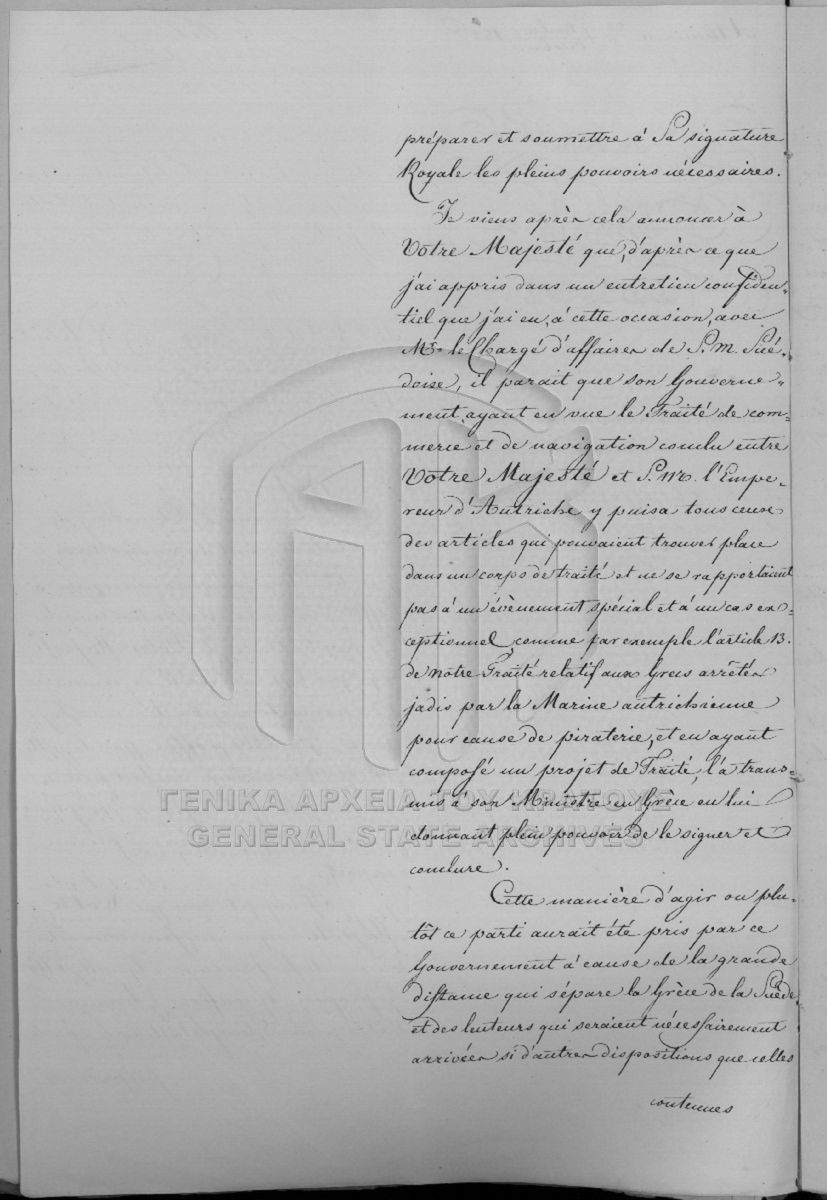 préparer et soumettre à Sa signature
Royale les pleins pouvoirs nécessaires.
Je viens après cela annoncer à
Votre Majesté que, d'après ce que
j'ai appris dans un entretien confiden„
tiel que j'ai eu, à cette occasion, avec
Mr. le Chargé d'affaires de S. M. Sué-
doise, il parait que son Gouverne„
ment, ayant en vue le Traité de com-
merce et de navigation conclu entre
Votre Majesté et S. M. l'Empe-
reur d'Autriche y puisa tous ceux
des articles qui pouvaient trouver place
dans un corps de traité et ne se rapportaient
pas à un évènement spécial et à un cas ex-
ceptionnel, comme par exemple l'article 13.
de notre Traité relatif aux Grecs arrêtés
jadis par la Marine autrichienne
pour cause de piraterie, et en ayant
composé un projet de Traité, l'a trans-
mis à son Ministre en Grèce en lui
donnant plein pouvoir de le signer et
conclure.
Cette manière d'agir ou plu-
tôt ce parti aurait été pris par ce
Gouvernement à cause de la grande
distance qui sépare la Grèce de la Suède
et des lenteurs qui seraient nécessairement
arrivées si d'autres dispositions que celles
contenues
ΓΕΝΙΚΑ ΑΡΧΕΙΑ ΤΟΥ ΚΡΑΤΟΥΣ
GENERAL STATE ARCHIVES